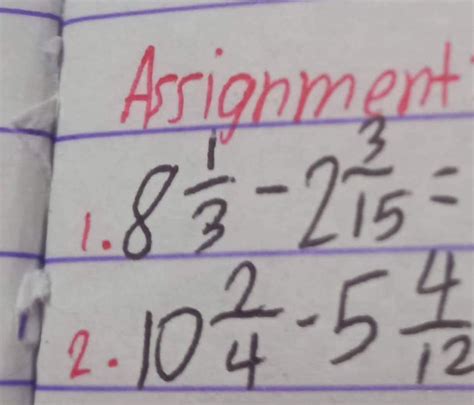 Assignment
1. 8 1/3 - 2 3/15 =
2. 10 2/4 - 5 4/12